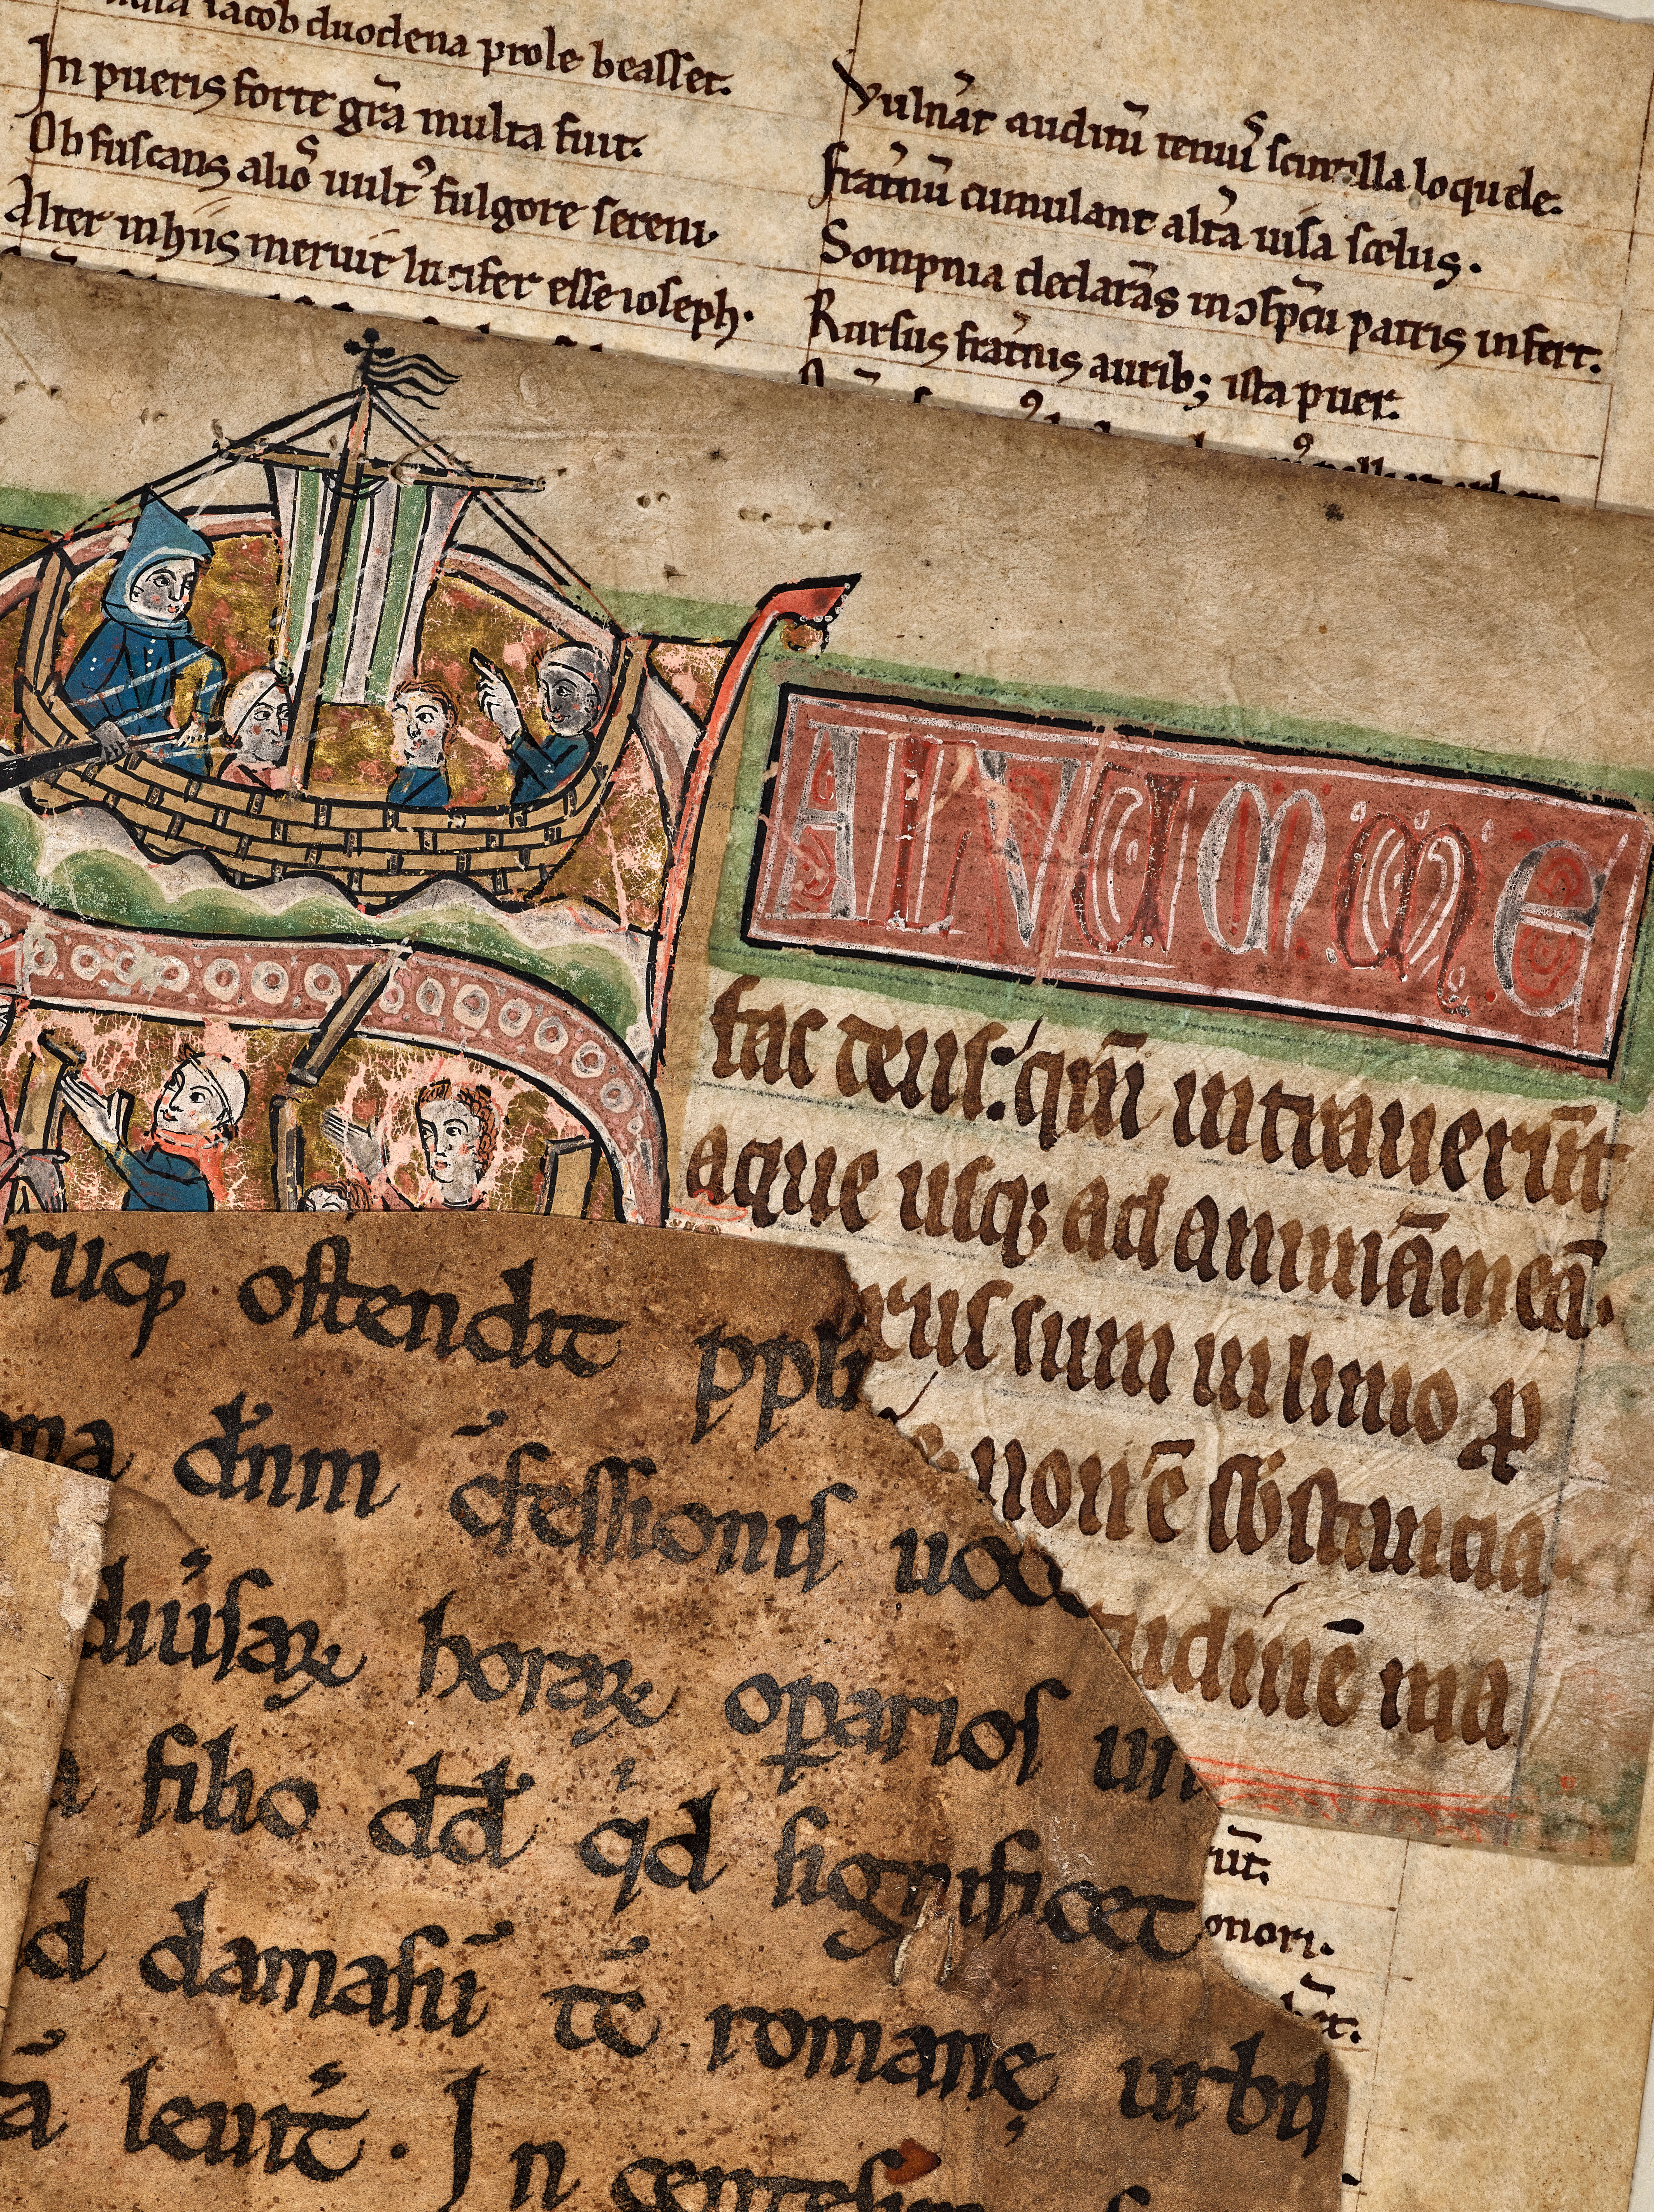 iacob duodena prole beasset.
In pueris forte gr̄a multa fuit.
Obfuscans alioꝰ uultꝰ fulgore sereni.
Alter in hiis meruit lucifer esse ioseph.
Vuln̓at auditū tenuiꝰ scintilla loquele.
frat̓nū cumulant alt̓a uisa scelus.
Sompnia declarās in ↄsp̄cū patris infert.
Rursus frat̓nis aurib; ista puer.
ALVUMME
fac deus: qm̄ intrauerūt
aque usq; ad animā meā.
sum in limo ꝓ
non ē sb̄stancia.
tudinē ma
ruꝙ ostendit ppl̄i
dn̄m ↄ̄fessionis uoce
diuisaꝝ horaꝝ oꝑarios
filio dd̄ qd̓ significet
d damasū tc̄ romanę urbis
ā leuit̄. In centesim
ūt.
onori.